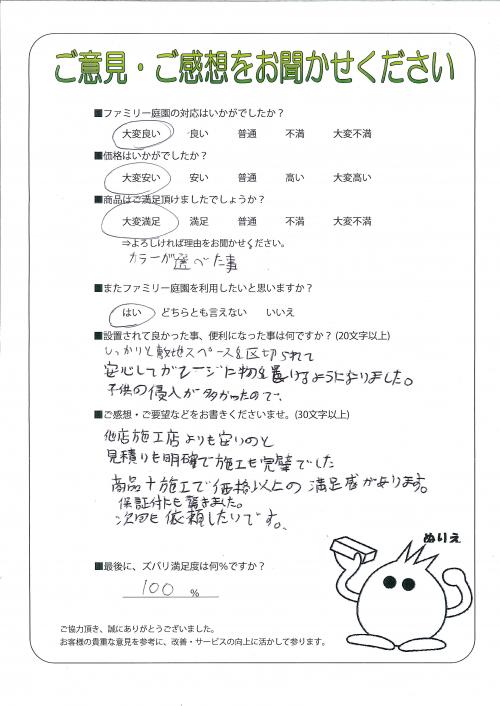 ご意見・ご感想をお聞かせください
■ファミリー庭園の対応はいかがでしたか？
大変良い 良い 普通 不満 大変不満
■価格はいかがでしたか？
大変安い 安い 普通 高い 大変高い
■商品はご満足頂けましたでしょうか？
大変満足 満足 普通 不満 大変不満
⇒よろしければ理由をお聞かせください。
カラーが選べた事
■またファミリー庭園を利用したいと思いますか？
はい どちらとも言えない いいえ
■設置されて良かった事、便利になった事は何ですか？(20文字以上)
しっかりと敷地スペースを区切られて
安心してガレージに物を置けるようになりました。
子供の侵入が多かったので、
■ご感想・ご要望などをお書きくださいませ。(30文字以上)
他店施工店よりも安いのと
見積りも明確で施工も完璧でした
商品+施工で価格以上の満足感があります。
保証付にも驚きました。
次回も依頼したいです。
ぬりえ
■最後に、ズバリ満足度は何%ですか？
100 %
ご協力頂き、誠にありがとうございました。
お客様の貴重な意見を参考に、改善・サービスの向上に活かして参ります。